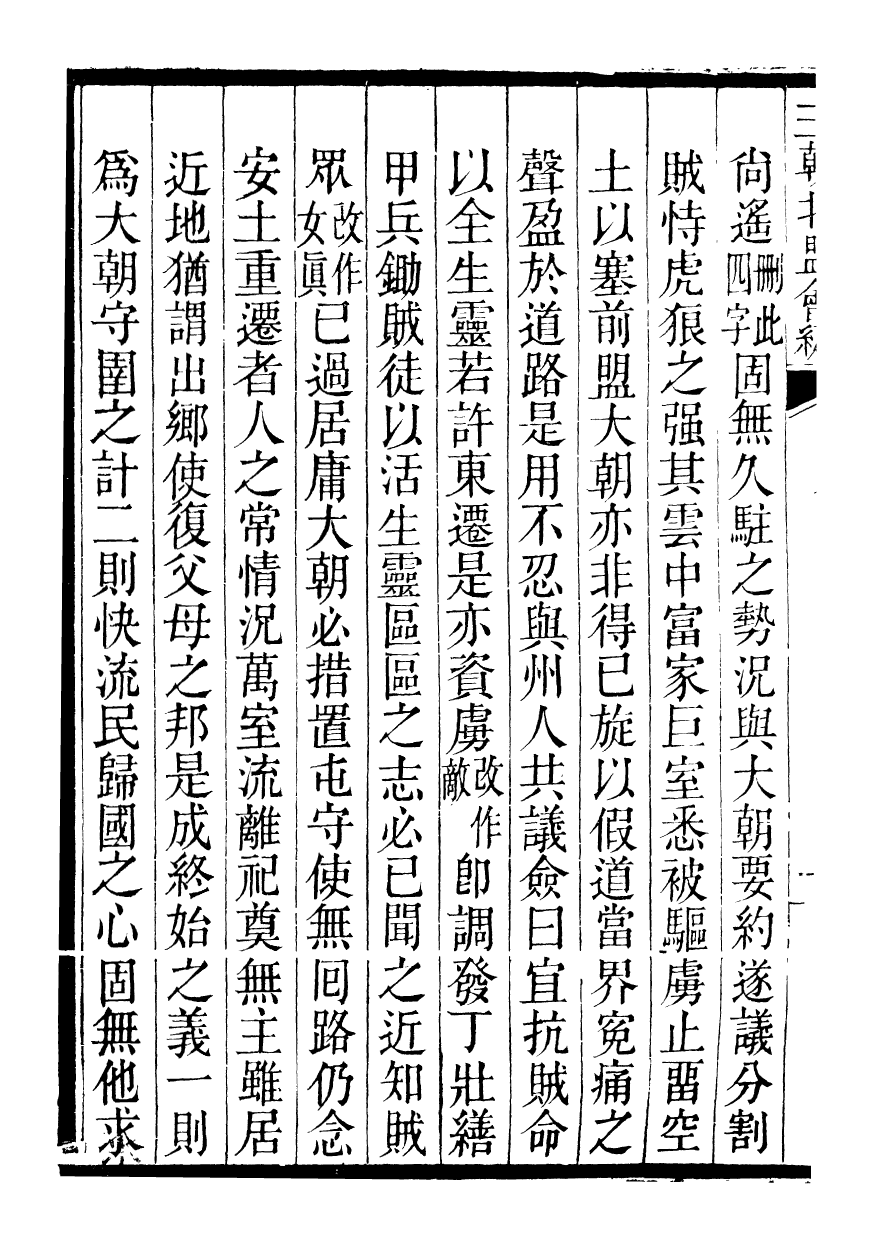 三朝北盟會編
尙遙刪此四字固無久駐之勢況與大朝要約遂議分割
賊恃虎狼之强其雲中富家巨室悉被驅虜止畱空
土以塞前盟大朝亦非得已旋以假道當界冤痛之
聲盈於道路是用不忍與州人共議僉曰宜抗賊命
以全生靈若許東遷是亦資虜改作敵卽調發丁壯繕
甲兵鋤賊徒以活生靈區區之志必已聞之近知賊
眾改作女眞已過居庸大朝必措置屯守使無回路仍念
安土重遷者人之常情況萬室流離祀奠無主雖居
近地猶謂出鄉使復父母之邦是成終始之義一則
爲大朝守圉之計二則快流民歸國之心固無他求